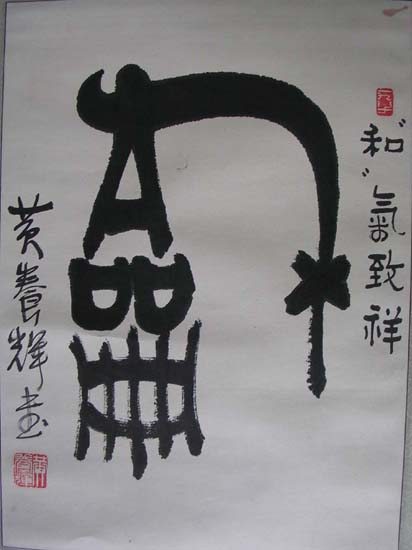 “和”氣致祥
龢
黄養輝書